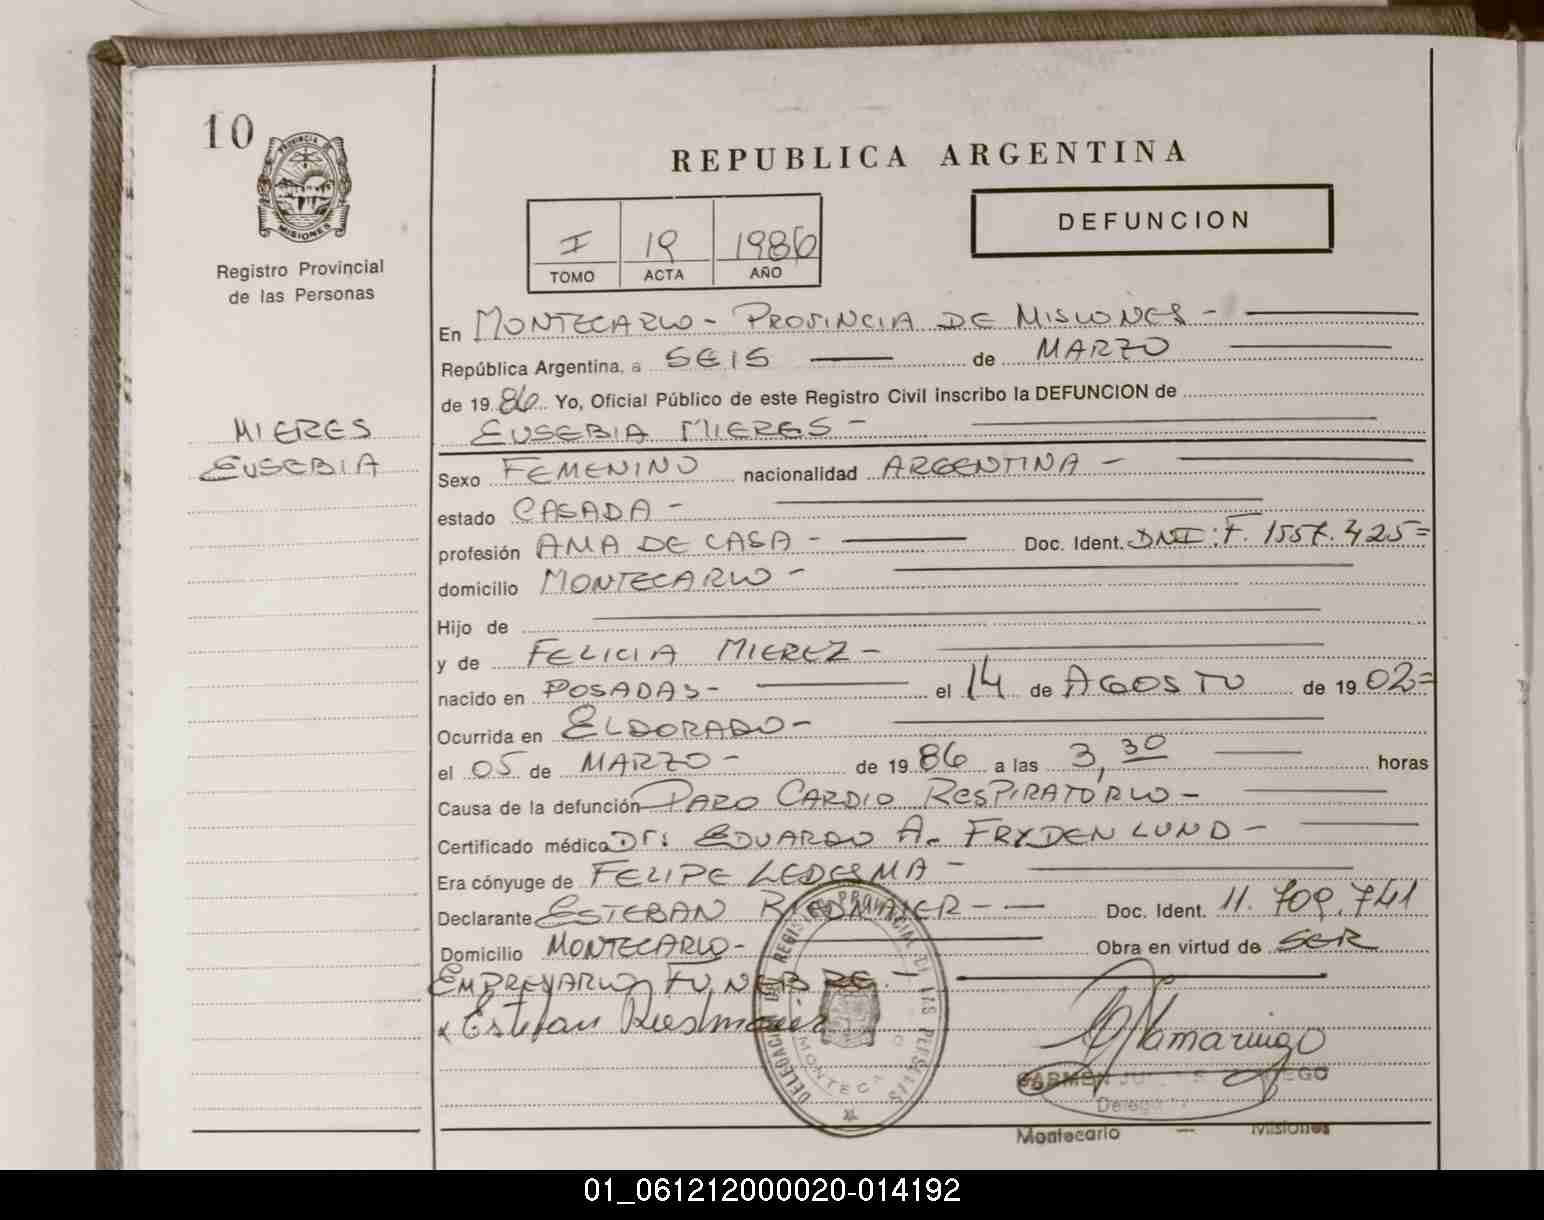 10
PROVINCIA DE
MISIONES
Registro Provincial
de las Personas
MIERES
EUSEBIA
REPUBLICA ARGENTINA
I 19 1986
TOMO ACTA AÑO
DEFUNCION
En MONTECARLO - PROVINCIA DE MISIONES -
República Argentina, a SEIS de MARZO
de 1986 Yo, Oficial Público de este Registro Civil inscribo la DEFUNCION de
EUSEBIA MIERES -
Sexo FEMENINO nacionalidad ARGENTINA -
estado CASADA -
profesión AMA DE CASA - Doc. Ident. DNI: F. 425=
domicilio MONTECARLO -
Hijo de
y de FELICIA MIEREZ -
nacido en POSADAS - el 14 de AGOSTO de 1902=
Ocurrida en ELDORADO -
el 05 de MARZO - de 1986 a las 3,30 horas
Causa de la defunción PARO CARDIO RESPIRATORIO -
Certificado médico Dr: EDUARDO A. FRYDENLUND -
Era cónyuge de FELIPE LEDESMA -
Declarante ESTEBAN RIEDMAIER - Doc. Ident. 11.709.741
Domicilio MONTECARLO - Obra en virtud de SER
EMPRESARIO FUNEBRE. -
x Esteban Riedmaier
DELEGACION REGISTRO PROVINCIAL DE LAS PERSONAS
CARMEN
Montecarlo — Misiones
01_061212000020-014192